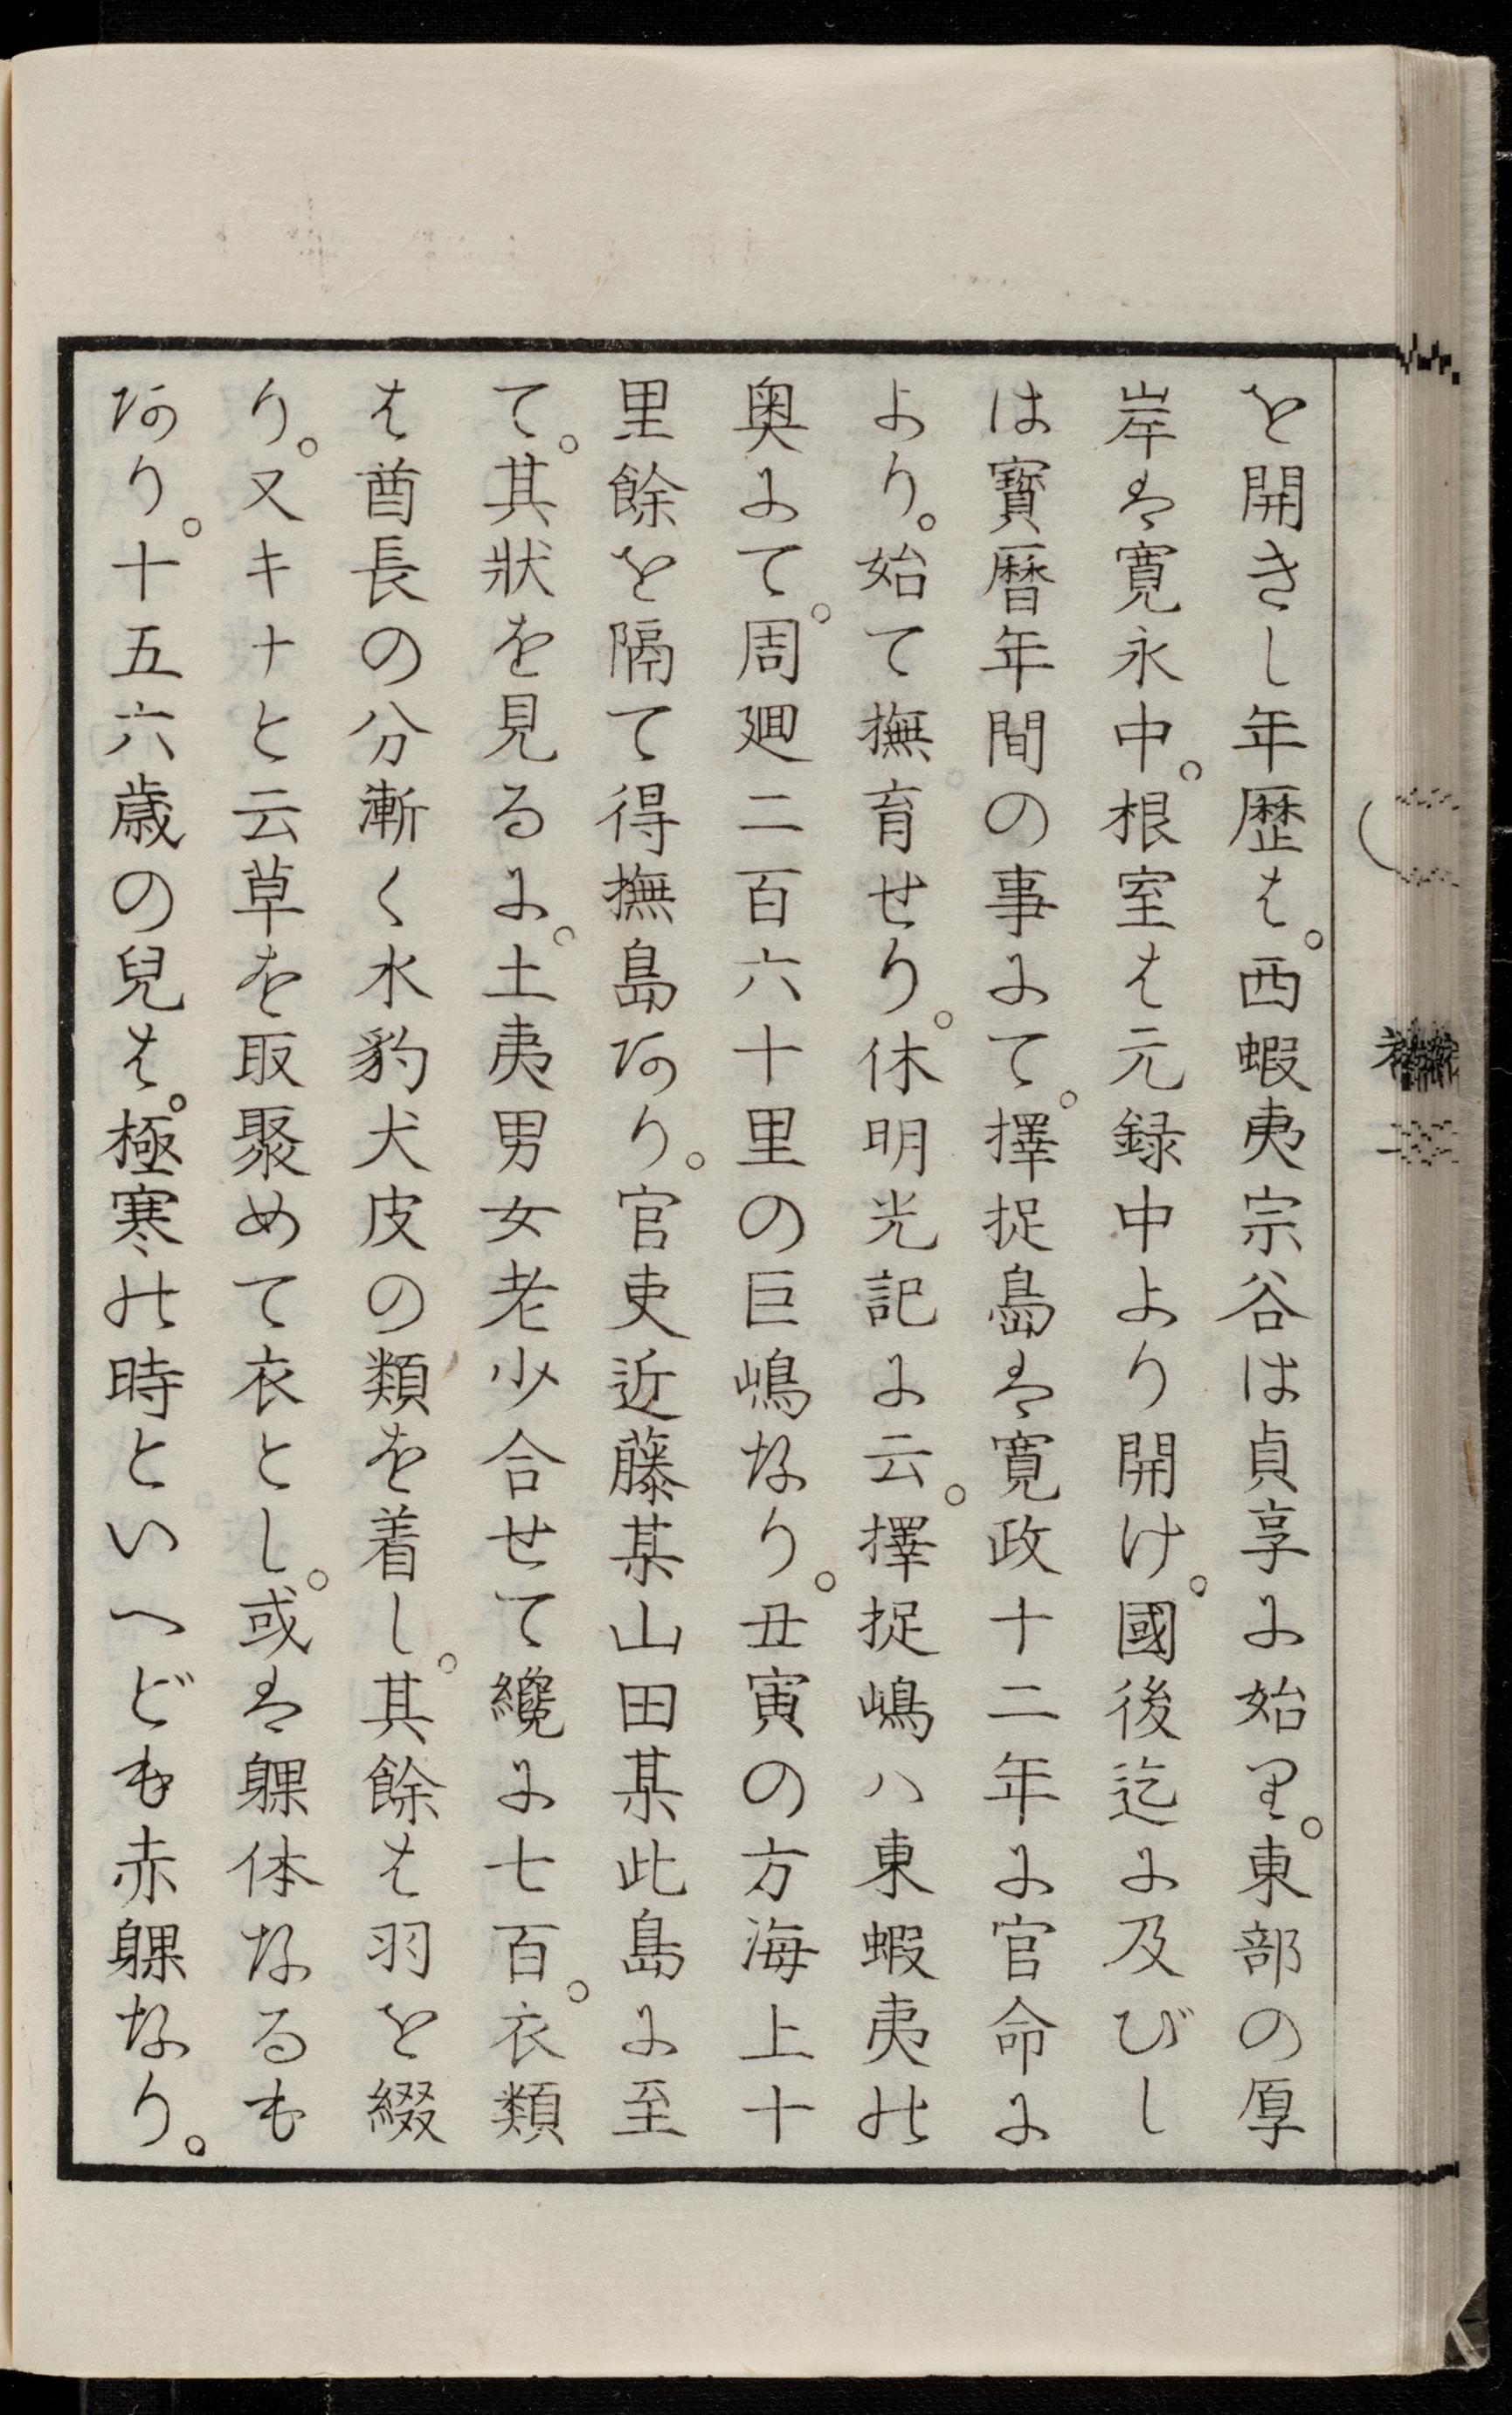 を開きし年歴は。西蝦夷宗谷は貞享に始り。東部の厚
岸は寛永中。根室は元録中より開け。國後迄に及びし
は寳暦年間の事にて。擇捉島は寛政十二年に官命に
より。始て撫育せり。休明光記に云。擇捉嶋ハ東蝦夷の
奥にて。周廻二百六十里の巨嶋なり。丑寅の方海上十
里餘を隔て得撫島あり。官吏近藤某山田某此島に至
て。其狀を見るに。土夷男女老少合せて纔に七百。衣類
は酋長の分漸く水豹犬皮の類を着し。其餘は羽を綴
り。又キナと云草を取聚めて衣とし。或は躶体なるも
あり。十五六歳の兒は。極寒の時といへども赤躶なり。